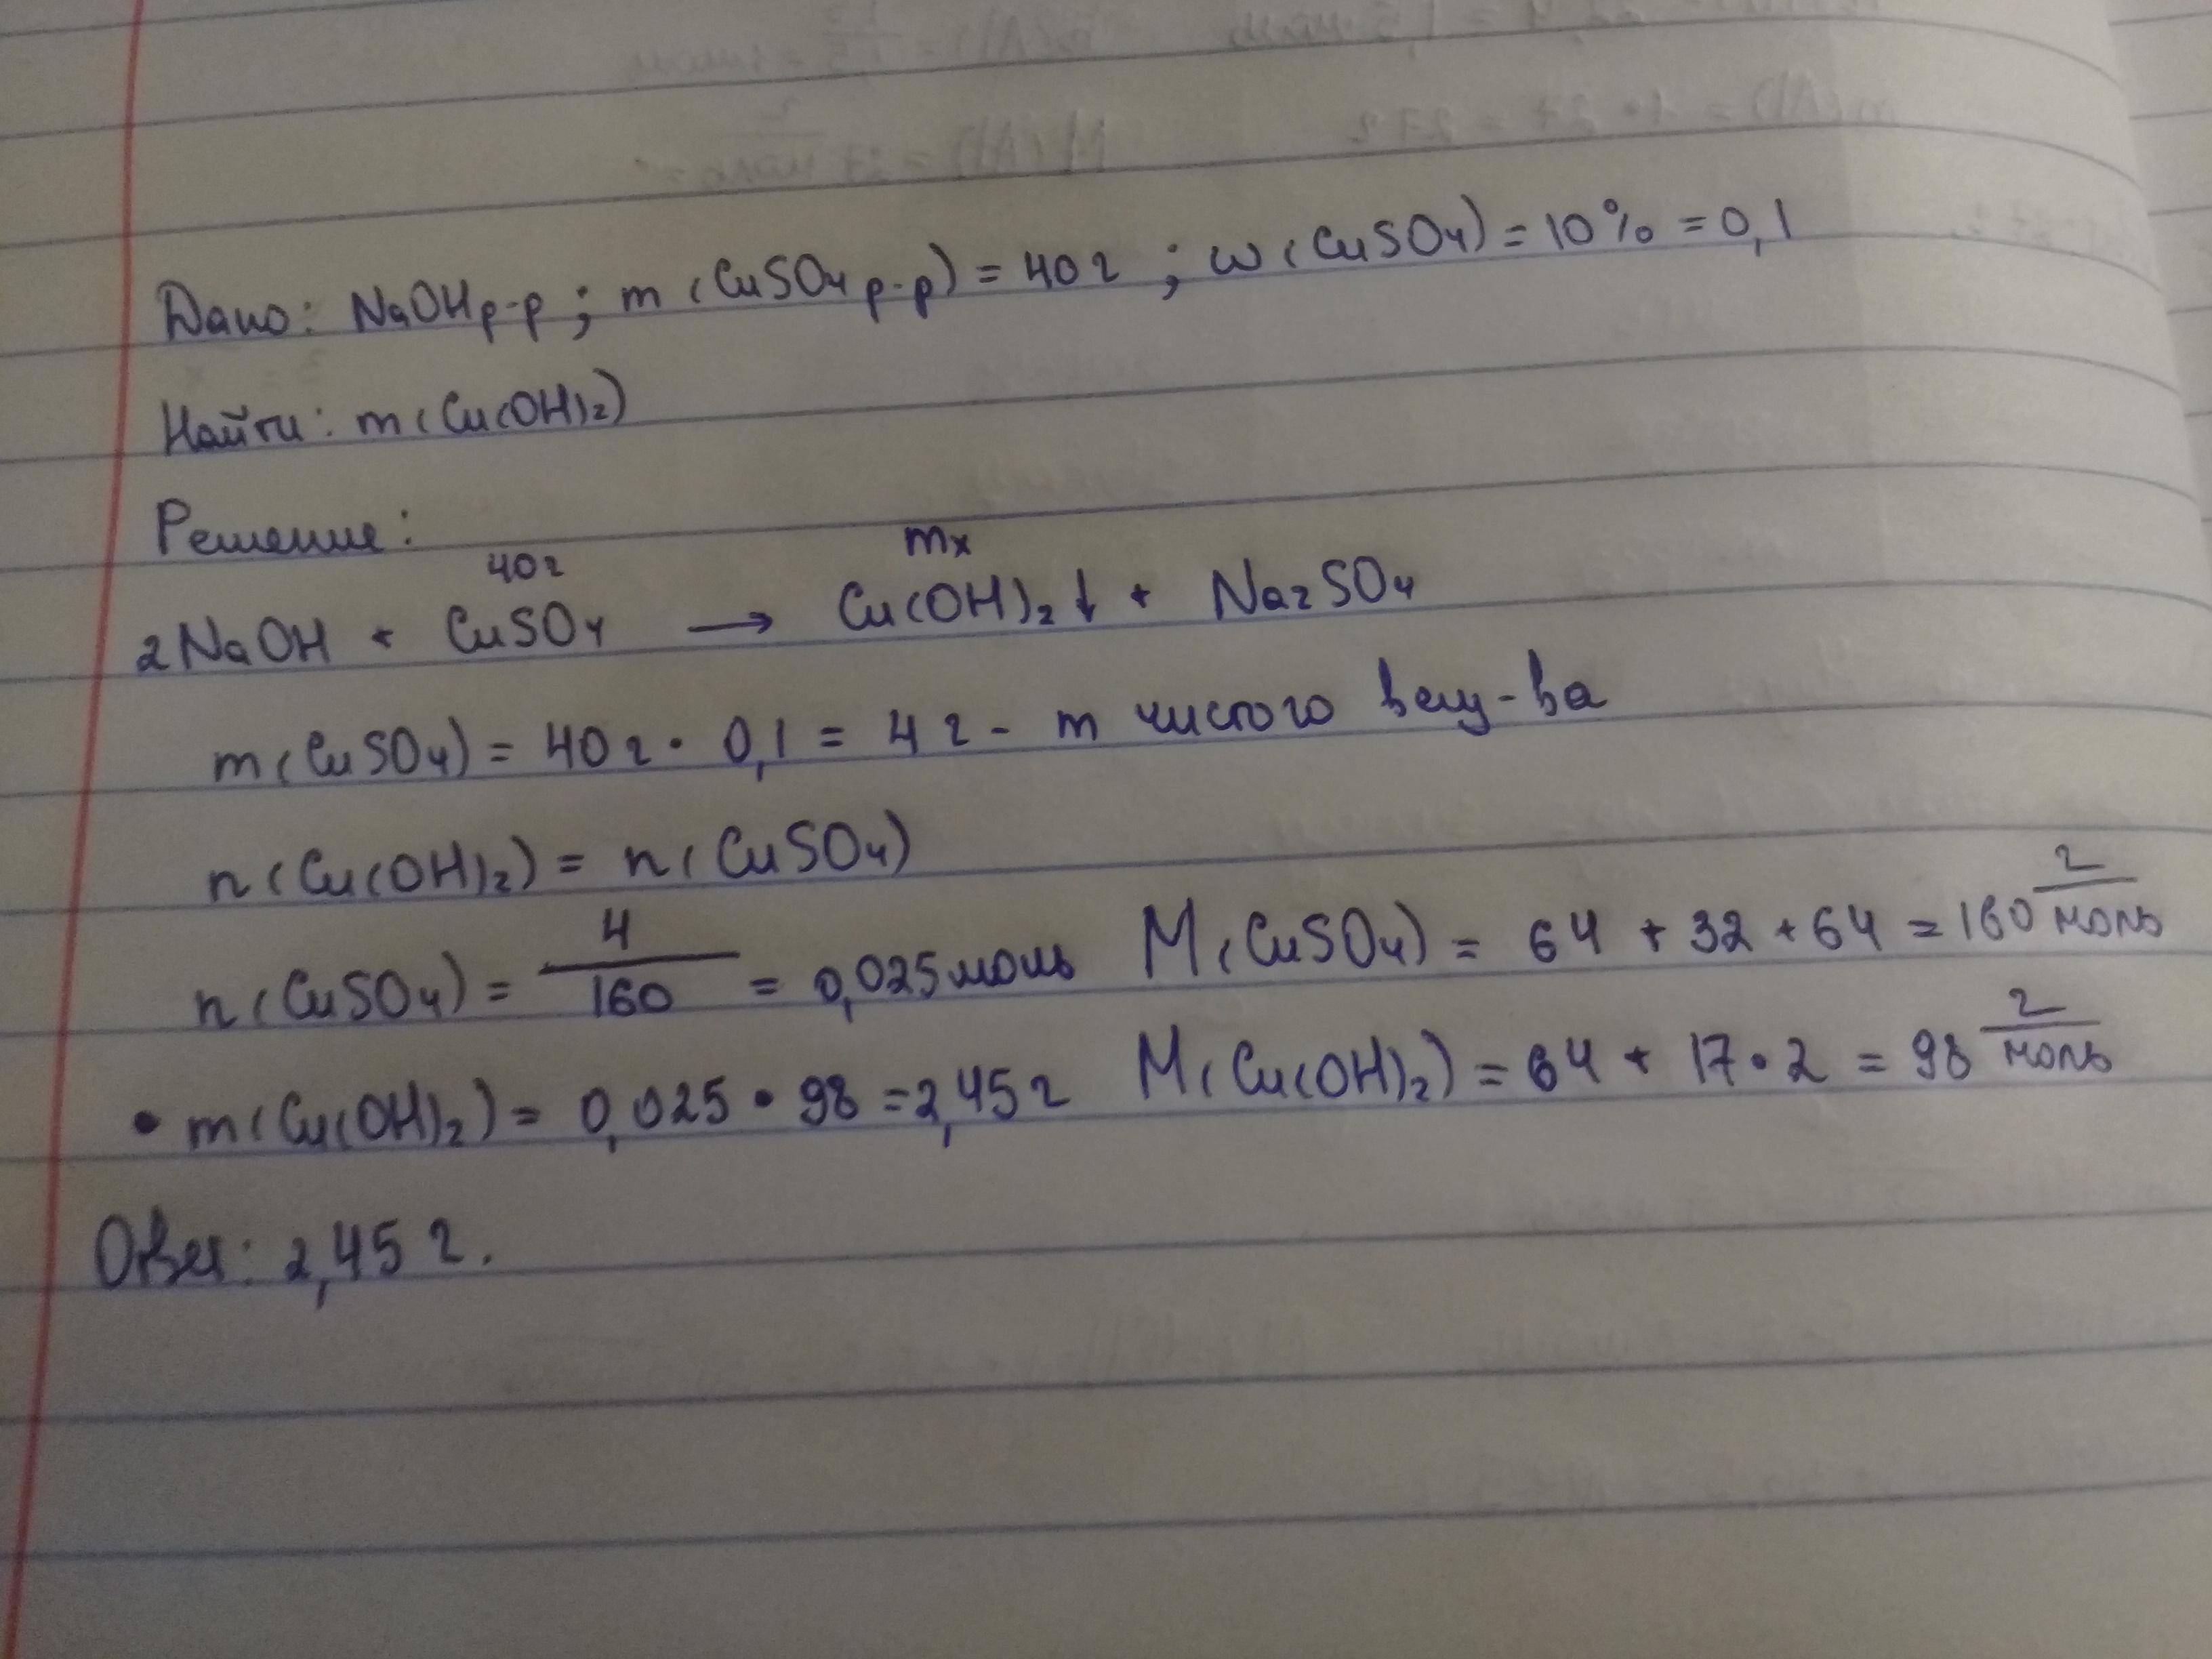 Дано: NaOH р-р; m(CuSO4 р-р) = 40 г; ω(CuSO4) = 10% = 0,1
Найти: m(Cu(OH)2)
Решение:
40г mx
2NaOH + CuSO4 → Cu(OH)2↓ + Na2SO4
m(CuSO4) = 40 г · 0,1 = 4 г - m чистого вещ-ва
n(Cu(OH)2) = n(CuSO4)
n(CuSO4) = 4/160 = 0,025 моль M(CuSO4) = 64 + 32 + 64 = 160 г/моль
• m(Cu(OH)2) = 0,025 · 98 = 2,45 г M(Cu(OH)2) = 64 + 17 · 2 = 98 г/моль
Ответ: 2,45 г.